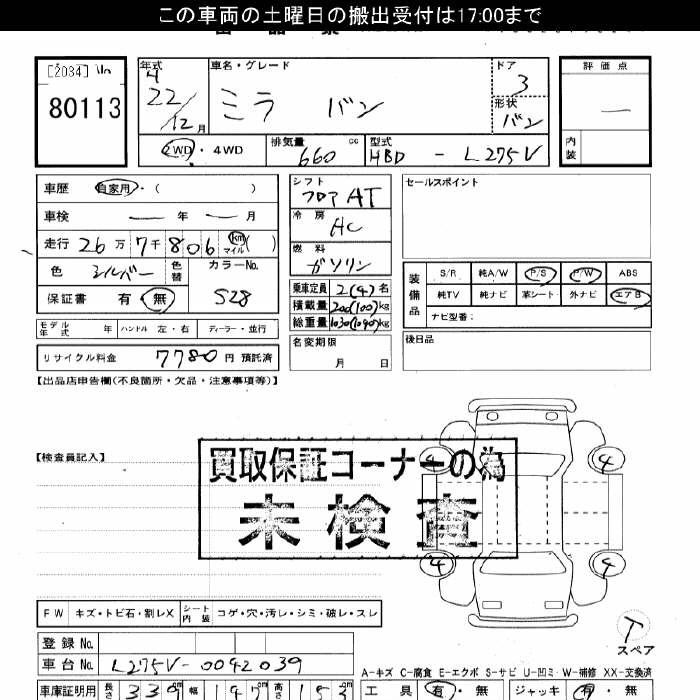 この車両の土曜日の搬出受付は17:00まで
[2034]
80113
年式 車名・グレード ドア 評価点
22/12月 ミラ バン 3
形状 バン
排気量 cc 型式 内装
2WD・4WD 660 HBD - L275V
車歴 自家用・( )
車検 年 月
走行 26万7千806 km マイル( )
色 シルバー 色替 カラーNo. S28
保証書 有・無
モデル年式 年 ハンドル 左・右 ディーラー・並行
リサイクル料金 7780円 預託済
シフト フロア AT
冷房 AC
燃料 ガソリン
乗車定員 2(4)名
積載量 200(100)kg
総重量 1030(1090)kg
名変期限
月 日
セールスポイント
装備品 S/R 純A/W P/S P/W ABS
純TV 純ナビ 革シート 外ナビ エアB
ナビ型番:
後日品
【出品店申告欄(不良箇所・欠品・注意事項等)】
【検査員記入】
買取保証コーナーの為
未検査
4 4
4 4
FW キズ・トビ石・割レX シート内装 コゲ・穴・汚レ・シミ・破レ・スレ
T
スペア
登録No.
車台No. L275V-0042039
A-キズ C-腐食 E-エクボ S-サビ U-凹ミ W-補修 XX-交換済
車庫証明用 長さ 339cm 幅 147cm 高さ 153cm
工具 有・無 ジャッキ 有・無